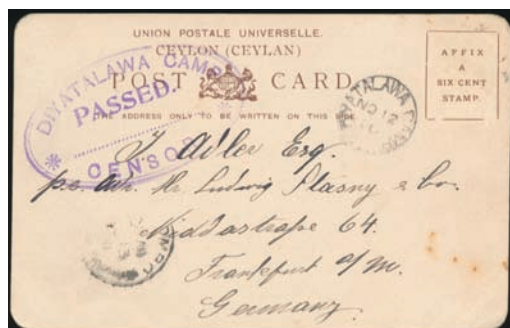 UNION POSTALE UNIVERSELLE.
CEYLON (CEYLAN)
POST CARD
THE ADDRESS ONLY TO BE WRITTEN ON THIS SIDE
AFFIX
A
SIX CENT
STAMP.
DIYATALAWA CAMP
PASSED.
CENSOR
DIYATALAWA
NO 12
J. Adler Esq.
p. adr. Mr. Ludwig Flasny & Co.
Niddastraße 64.
Frankfurt a/M.
Germany.